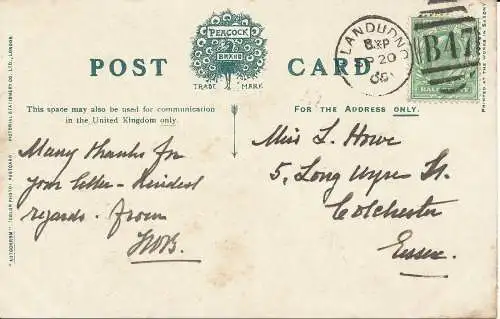 PEACOCK
BRAND
TRADE MARK
POST CARD
This space may also be used for communication
in the United Kingdom only.
FOR THE ADDRESS ONLY.
LLANDUDNO
SP 20
B47
HALFPENNY
Many thanks for
your letter - Kindest
regards. from
Miss L. Howe
5, Long Wyre St.
Colchester
Essex.
"AUTOCHROM" (COLOR PHOTO) POSTCARD PICTORIAL STATIONERY CO., LTD., LONDON.
PRINTED AT THE WORKS IN SAXONY